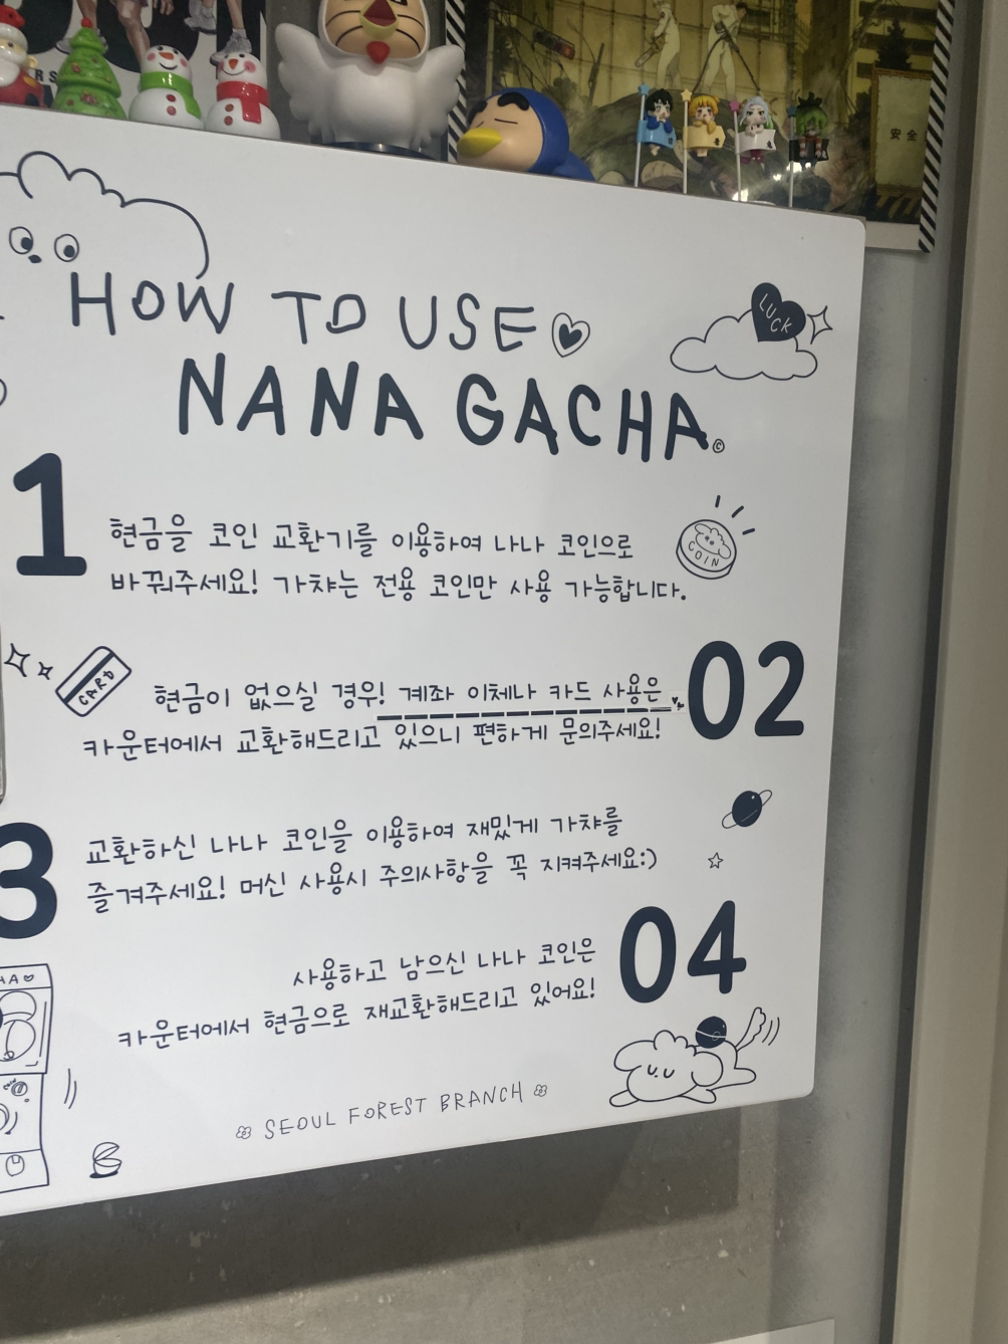 RS
安全
LUCK
HOW TO USE
NANA GACHA
©
1
현금을 코인 교환기를 이용하여 나나 코인으로
바꿔주세요! 가챠는 전용 코인만 사용 가능합니다.
COIN
CARD
02
현금이 없으실 경우! 계좌 이체나 카드 사용은
카운터에서 교환해드리고 있으니 편하게 문의주세요!
3
교환하신 나나 코인을 이용하여 재밌게 가챠를
즐겨주세요! 머신 사용시 주의사항을 꼭 지켜주세요:)
04
사용하고 남으신 나나 코인은
카운터에서 현금으로 재교환해드리고 있어요!
SEOUL FOREST BRANCH